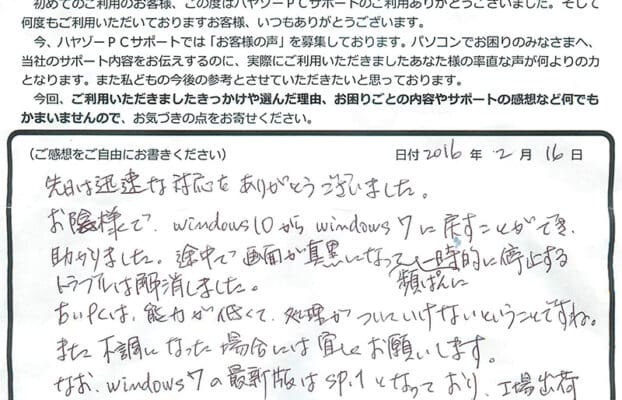 初めてのご利用のお客様、この度はハヤゾーPCサポートのご利用ありがとうございました。そして
何度もご利用いただいておりますお客様、いつもありがとうございます。
今、ハヤゾーPCサポートでは「お客様の声」を募集しております。パソコンでお困りのみなさまへ、
当社のサポート内容をお伝えするのに、実際にご利用いただきましたあなた様の率直な声が何よりの力
となります。また私どもの今後の参考とさせていただきたいと思っております。
今回、ご利用いただきましたきっかけや選んだ理由、お困りごとの内容やサポートの感想など何でも
かまいませんので、お気づきの点をお寄せください。
(ご感想をご自由にお書きください) 日付 2016 年 2 月 16 日
先日は迅速な対応をありがとうございました。
お陰様で、windows10からwindows7に戻すことができ、
助かりました。途中で画面が真黒になって一時的に停止する
頻ぱんに
トラブルは解消しました。
古いPCは、能力が低くて、処理がついていけないということですね。
また不調になった場合には宜しくお願いします。
なお、windows7の最新版はSP.1となっており、工場出荷